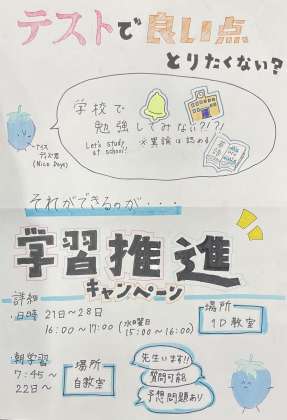 テストで良い点
とりたくない?
学校で
勉強してみない?!?!
Let's study
at school!
※異論は認める
英語
ナイス
デイズ君
(Nice Days)
それができるのが・・・
学習推進
キャンペーン
詳細
日時 21日~28日
16:00~17:00 (水曜日
15:00~16:00)
場所
1D教室
朝学習
7:45~
22日~
場所
自教室
先生います!!
質問可能
予想問題あり